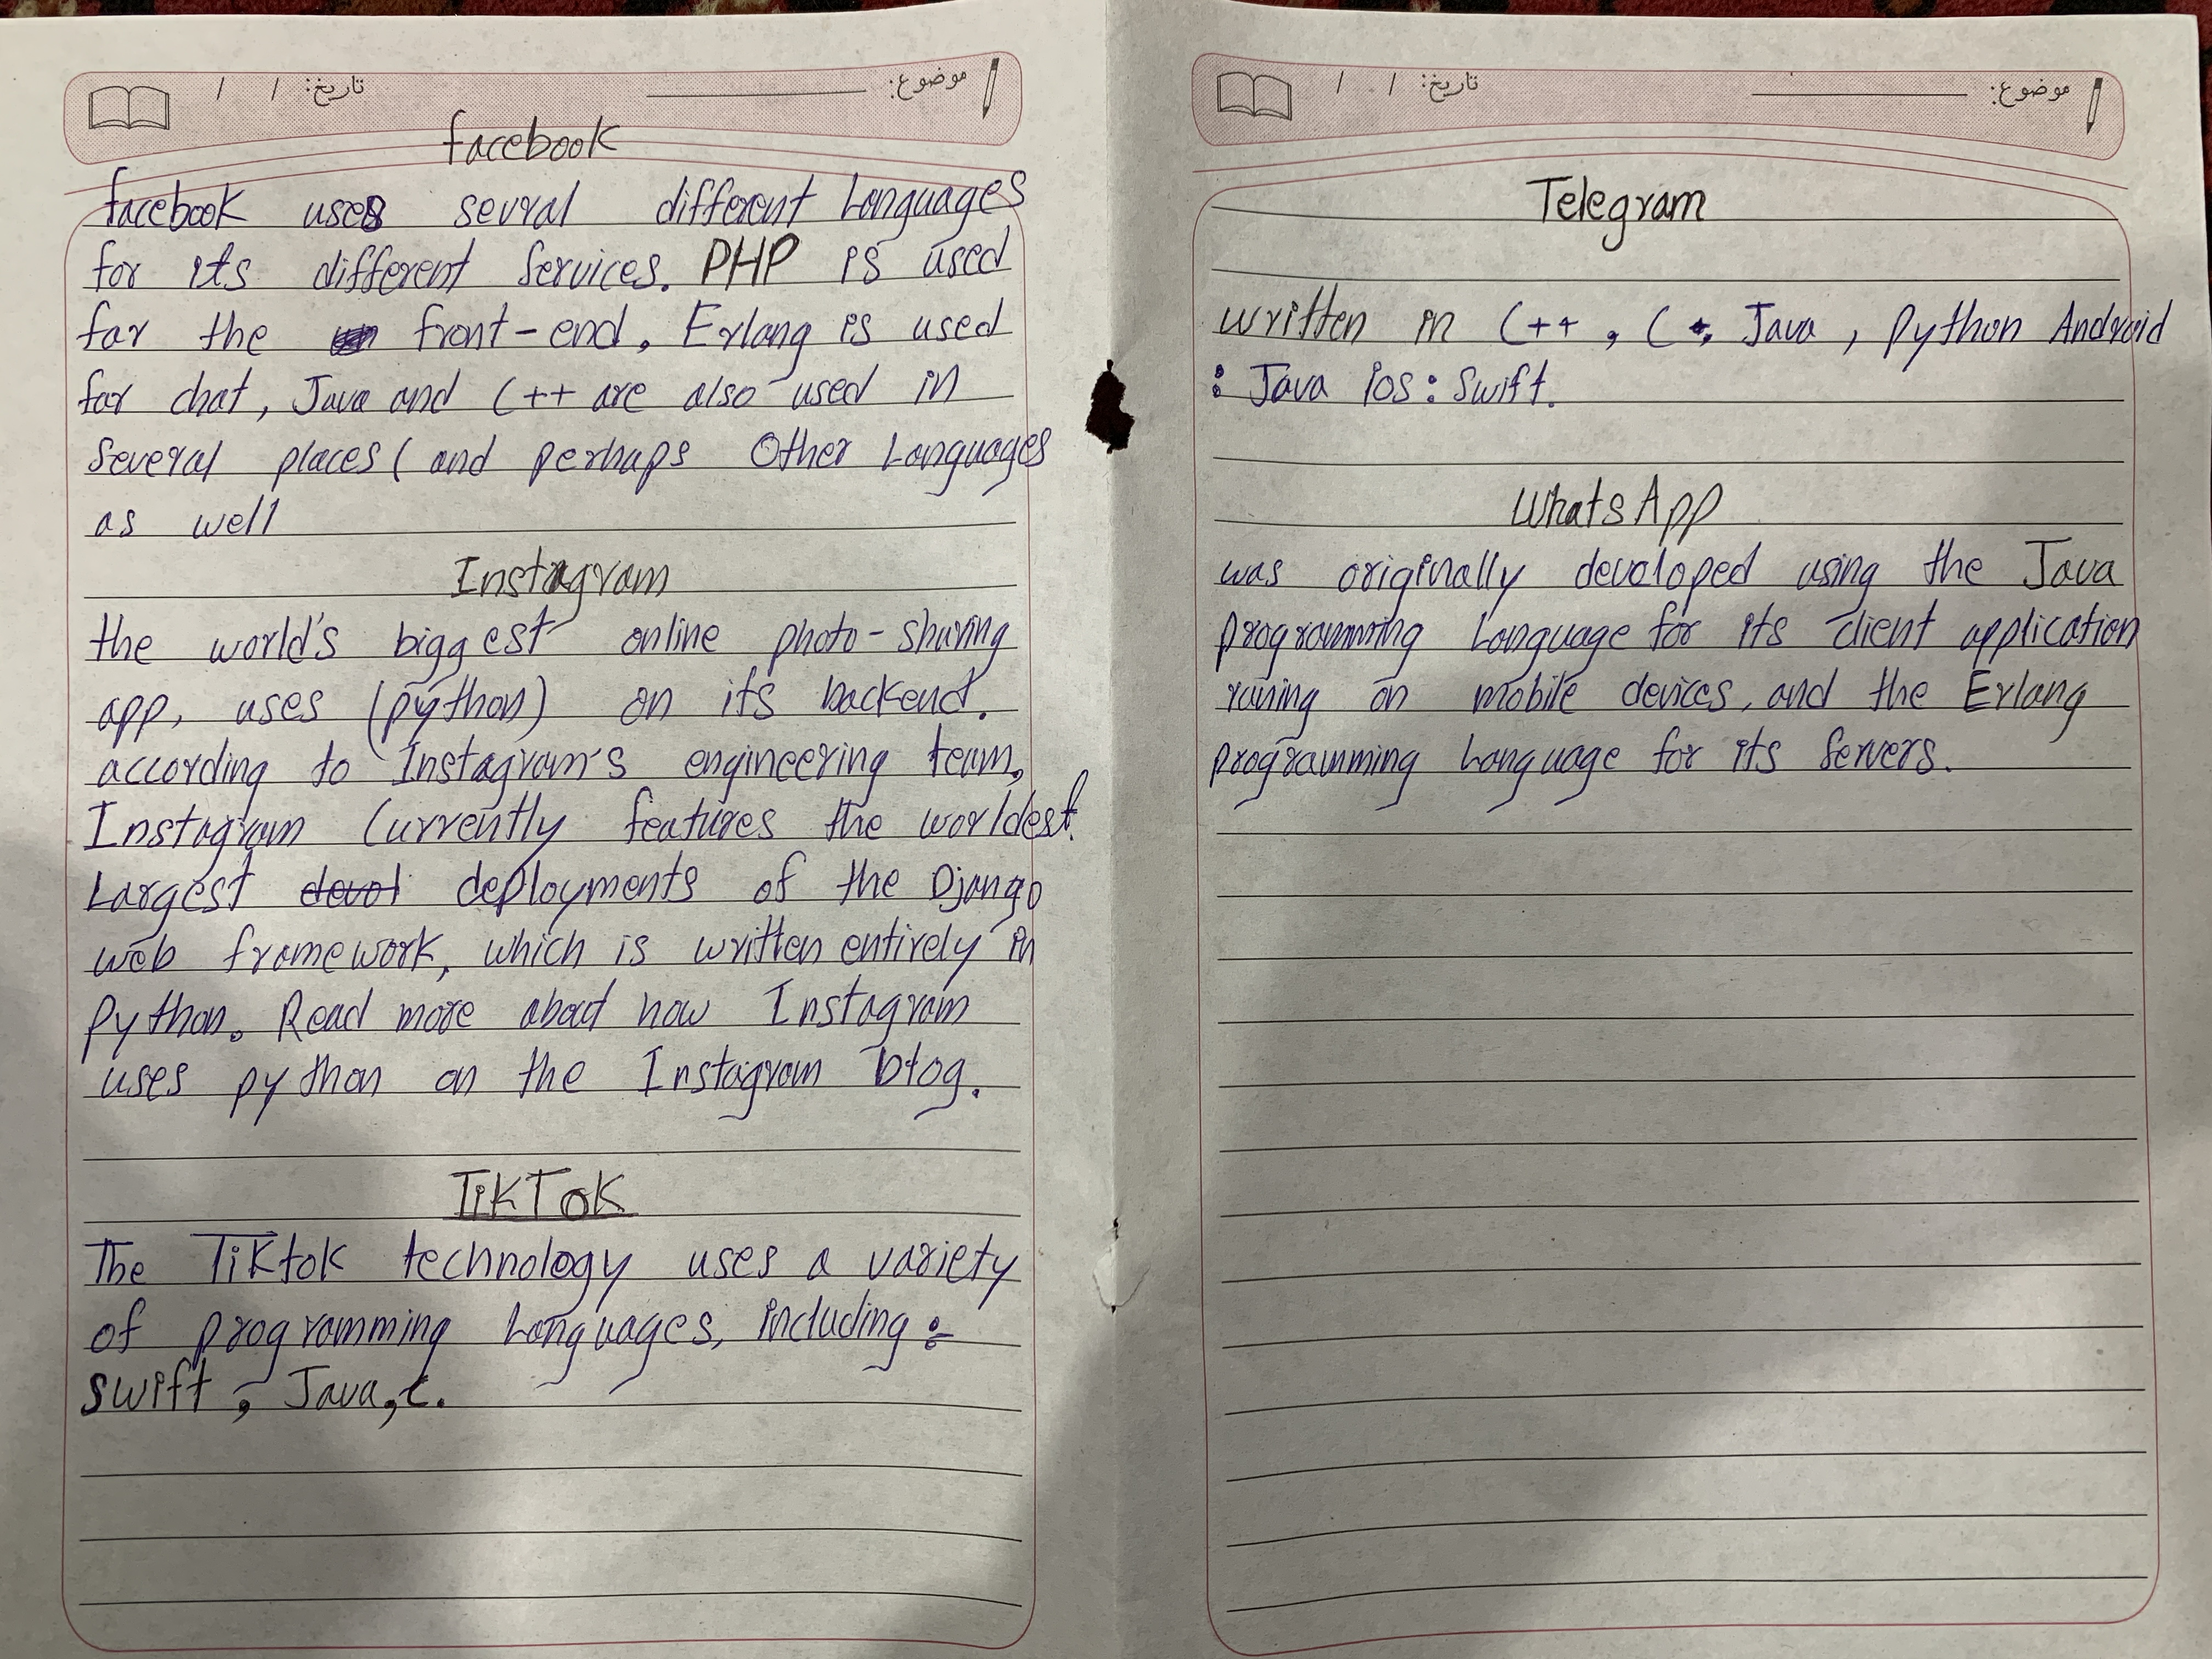 تاریخ: / /
موضوع:
facebook
facebook uses sevral different Languages
for its different services. PHP is used
for the front-end, Erlang is used
for chat, Java and C++ are also used in
several places (and perhaps Other Languages
as well
Instagram
the world's biggest online photo-sharing
app, uses (python) on its backend.
according to Instagram's engineering team,
Instagram Currently features the worldest
Largest deployments of the Django
web framework, which is written entirely in
Python. Read more about how Instagram
uses python on the Instagram blog.
TikTok
The TikTok technology uses a variety
of programming Languages, including :-
Swift, Java, C.
تاریخ: / /
موضوع:
Telegram
written in C++, C, Java, Python Android
: Java Ios: Swift.
WhatsApp
was originally devaloped using the Java
programming Language for its client application
runing on mobile devices, and the Erlang
programming Language for its servers.